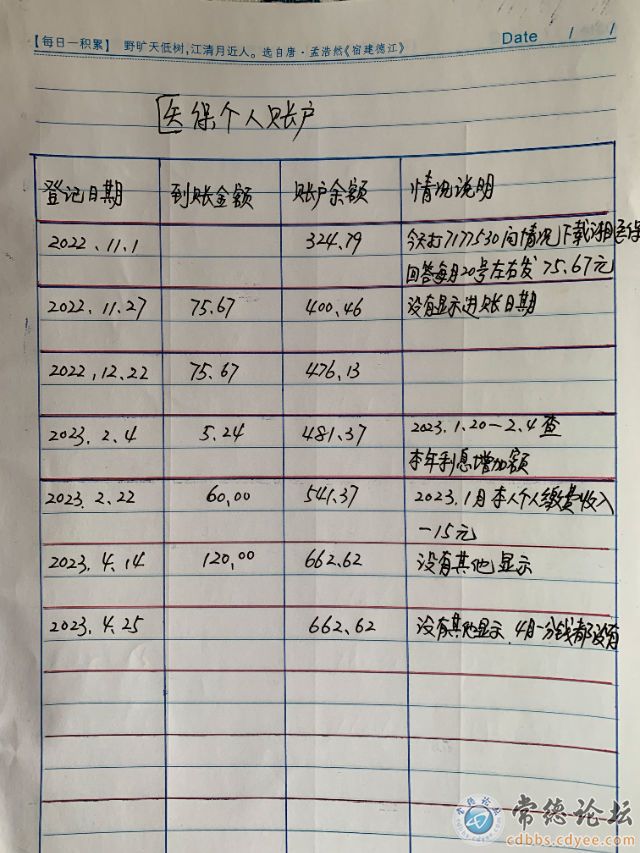 【每日一积累】 野旷天低树，江清月近人。选自唐·孟浩然《宿建德江》 Date / /
医保个人账户
登记日期 到账金额 账户余额 情况说明
2022.11.1 324.79 今天打7177530问情况下载湘医保
回答每月20号左右发75.67元
2022.11.27 75.67 400.46 没有显示进账日期
2022.12.22 75.67 476.13
2023.2.4 5.24 481.37 2023.1.20－2.4查
本年利息增加额
2023.2.22 60.00 541.37 2023.1月本人个人缴费收入
－15元
2023.4.14 120.00 662.62 没有其他显示
2023.4.25 662.62 没有其他显示.4月一分钱都没有
常德论坛
常德论坛
cdbbs.cdyee.com